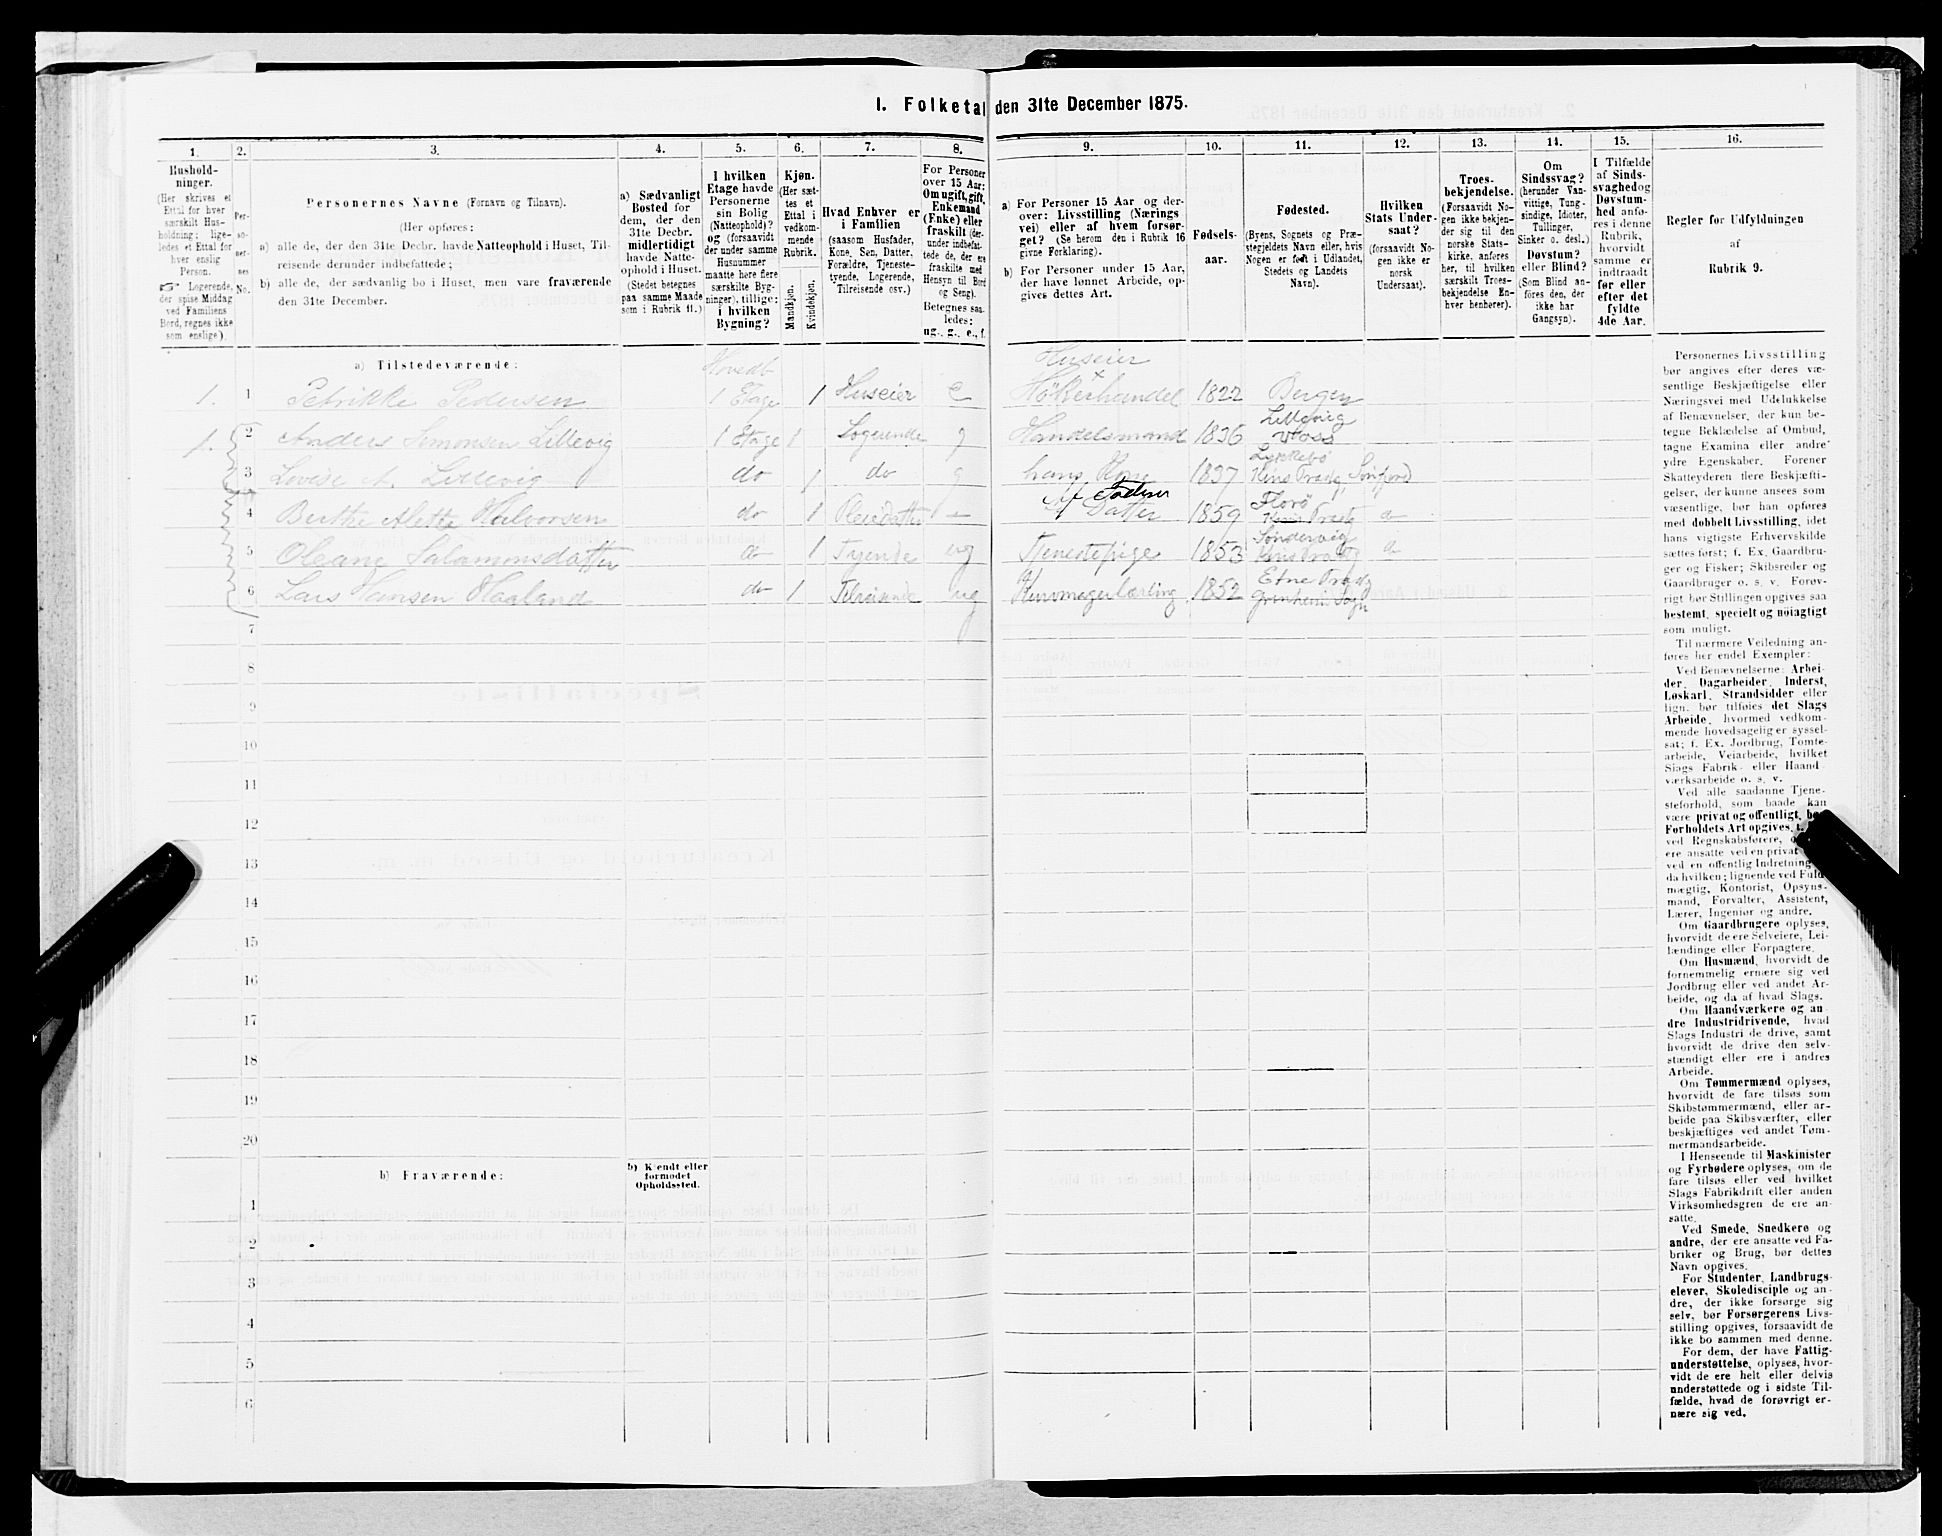 I. Folketal den 31te December 1875.
1. 2. 3. 4. 5. 6. 7. 8. 9. 10. 11. 12. 13. 14. 15. 16.
Hushold-
ninger.
(Her skrives et
Ettal for hver
særskilt Hus-
holdning; lige-
ledes et Ettal for
hver enslig
Person.
☞ Logerende,
der spise Middag
ved Familiens
Bord, regnes ikke
som enslige).
Per-
so-
ner-
nes
No.
Personernes Navne (Fornavn og Tilnavn).
(Her opføres:
a) alle de, der den 31te Decbr. havde Natteophold i Huset, Til-
reisende derunder indbefattede;
b) alle de, der sædvanlig bo i Huset, men vare fraværende
den 31te December.
a) Sædvanligt
Bosted for
dem, der den
31te Decbr.
midlertidigt
havde Natte-
ophold i Huset.
(Stedet betegnes
paa samme Maade
som i Rubrik 11.)
I hvilken
Etage havde
Personerne
sin Bolig
(Natteophold)?
og (forsaavidt
der under samme
Husnummer
maatte høre flere
særskilte Byg-
ninger), tillige:
i hvilken
Bygning?
Kjøn.
(Her sæt-
tes et
Ettal i
vedkom-
mende
Rubrik.
Mandkjøn.
Kvindekjøn.
Hvad Enhver er
i Familien
(saasom Husfader,
Kone, Søn, Datter,
Forældre, Tjeneste-
tyende, Logerende,
Tilreisende osv.)
For Personer
over 15 Aar:
Om ugift, gift,
Enkemand
(Enke) eller
fraskilt (der-
under indbefat-
tede de, der ere
fraskilte med
Hensyn til Bord
og Seng).
Betegnes saa-
ledes:
ug., g., e., f.
a) For Personer 15 Aar og der-
over: Livsstilling (Nærings
vei) eller af hvem forsør-
get? (Se herom den i Rubrik 16
givne Forklaring).
b) For Personer under 15 Aar,
der have lønnet Arbeide, op-
gives dettes Art.
Fødsels-
aar.
Fødested.
(Byens, Sognets og Præ-
stegjeldets Navn eller, hvis
Nogen er født i Udlandet,
Stedets og Landets
Navn).
Hvilken
Stats Under-
saat?
(forsaavidt No-
gen ikke er
norsk
Undersaat).
Troes-
bekjendelse.
(Forsaavidt No-
gen ikke bekjen-
der sig til den
norske Stats-
kirke, anføres
her, til hvilken
særskilt Troes-
bekjendelse En-
hver henhører).
Om
Sindssvag?
(herunder Van-
vittige, Tung-
sindige, Idioter,
Tullinger,
Sinker o. desl.)
Døvstum?
eller Blind?
(Som Blind an-
føres den, der
ikke har
Gangsyn).
I Tilfælde
af Sinds-
svaghed og
Døvstum-
hed anfø-
res i denne
Rubrik,
hvorvidt
samme er
indtraadt
før eller
efter det
fyldte
4de Aar.
Regler for Udfyldningen
af
Rubrik 9.
a) Tilstedeværende: Hovedb Huseier
1. 1 Petrikke Pedersen 1 Etage 1 Huseier e Høkerhandel 1822 Bergen
Lillevig
1. 2 Anders Simonsen Lillevig 1 Etage 1 Logerende g Handelsmand 1836 Voss
3 Lovise A. Lillevig do 1 do g hans Kone 1837
4 Berthe Alette Halvorsen do 1 Datter 1859 Florø
5 Oleane Salamonsdatter 1 Tyende ug Tjenestepige 1853
6 Lars Hansen Haaland do 1 Tilreisende ug Buntmagerlærling 1852 Etne
7
8
9
10
11
12
13
14
15
16
17
18
19
20
b) Fraværende:
b) Kjendt eller
formodet
Opholdssted.
1
2
3
4
5
6
Personernes Livsstilling
bør angives efter deres væ-
sentlige Beskjæftigelse eller
Næringsvei med Udelukkelse
af Benævnelser, der kun be-
tegne Beklædelse af Ombud,
tagne Examina eller andre
ydre Egenskaber. Forener
Skatteyderen flere Beskjæfti-
gelser, der kunne ansees som
væsentlige, bør han opføres
med dobbelt Livsstilling, idet
hans vigtigste Erhvervskilde
sættes først; f. Ex. Gaardbru-
ger og Fisker; Skibsreder og
Gaardbruger o. s. v. Forøv-
rigt bør Stillingen opgives saa
bestemt, specielt og nøiagtigt
som muligt.
Til nærmere Veiledning an-
føres her endel Exempler:
Ved Benævnelserne: Arbei-
der, Dagarbeider, Inderst,
Løskarl, Strandsidder eller
lign. bør tilføies det Slags
Arbeide, hvormed vedkom-
mende hovedsagelig er syssel-
sat; f. Ex. Jordbrug, Tomte-
arbeide, Veiarbeide, hvilket
Slags Fabrik- eller Haand-
værksarbeide o. s. v.
Ved alle saadanne Tjene-
steforhold, som baade kan
være privat og offentligt, bør
Forholdets Art opgives,
ved Regnskabsførere,
ere ansatte ved en privat
ved en offentlig Indretning
da hvilken; lignende ved Fuld-
mægtig, Kontorist, Opsyns-
mand, Forvalter, Assistent,
Lærer, Ingeniør og andre.
Om Gaardbrugere oplyses,
hvorvidt de ere Selveiere, Lei-
lændinge eller Forpagtere.
Om Husmænd, hvorvidt de
fornemmelig ernære sig ved
Jordbrug eller ved andet Ar-
beide, og da af hvad Slags.
Om Haandværkere og an-
dre Industridrivende, hvad
Slags Industri de drive, samt
hvorvidt de drive den selv-
stændigt eller ere i andres
Arbeide.
Om Tømmermænd oplyses,
hvorvidt de fare tilsøs som
Skibstømmermænd, eller ar-
beide paa Skibsværfter, eller
beskjæftiges ved andet Tøm-
mermandsarbeide.
I Henseende til Maskinister
og Fyrbødere oplyses, om de
fare tilsøs eller ved hvilket
Slags Fabrikdrift eller anden
Virksomhedsgren de ere an-
satte.
Ved Smede, Snedkere og
andre, der ere ansatte ved Fa-
briker og Brug, bør dettes
Navn opgives.
For Studenter, Landbrugs-
elever, Skoledisciple og an-
dre, der ikke forsørge sig
selv, bør Forsørgerens Livs-
stilling opgives, forsaavidt de
ikke bo sammen med denne.
For dem, der have Fattig-
understøttelse, oplyses, hvor-
vidt de ere helt eller delvis
understøttede og i sidste Til-
fælde, hvad de forøvrigt er-
nære sig ved.